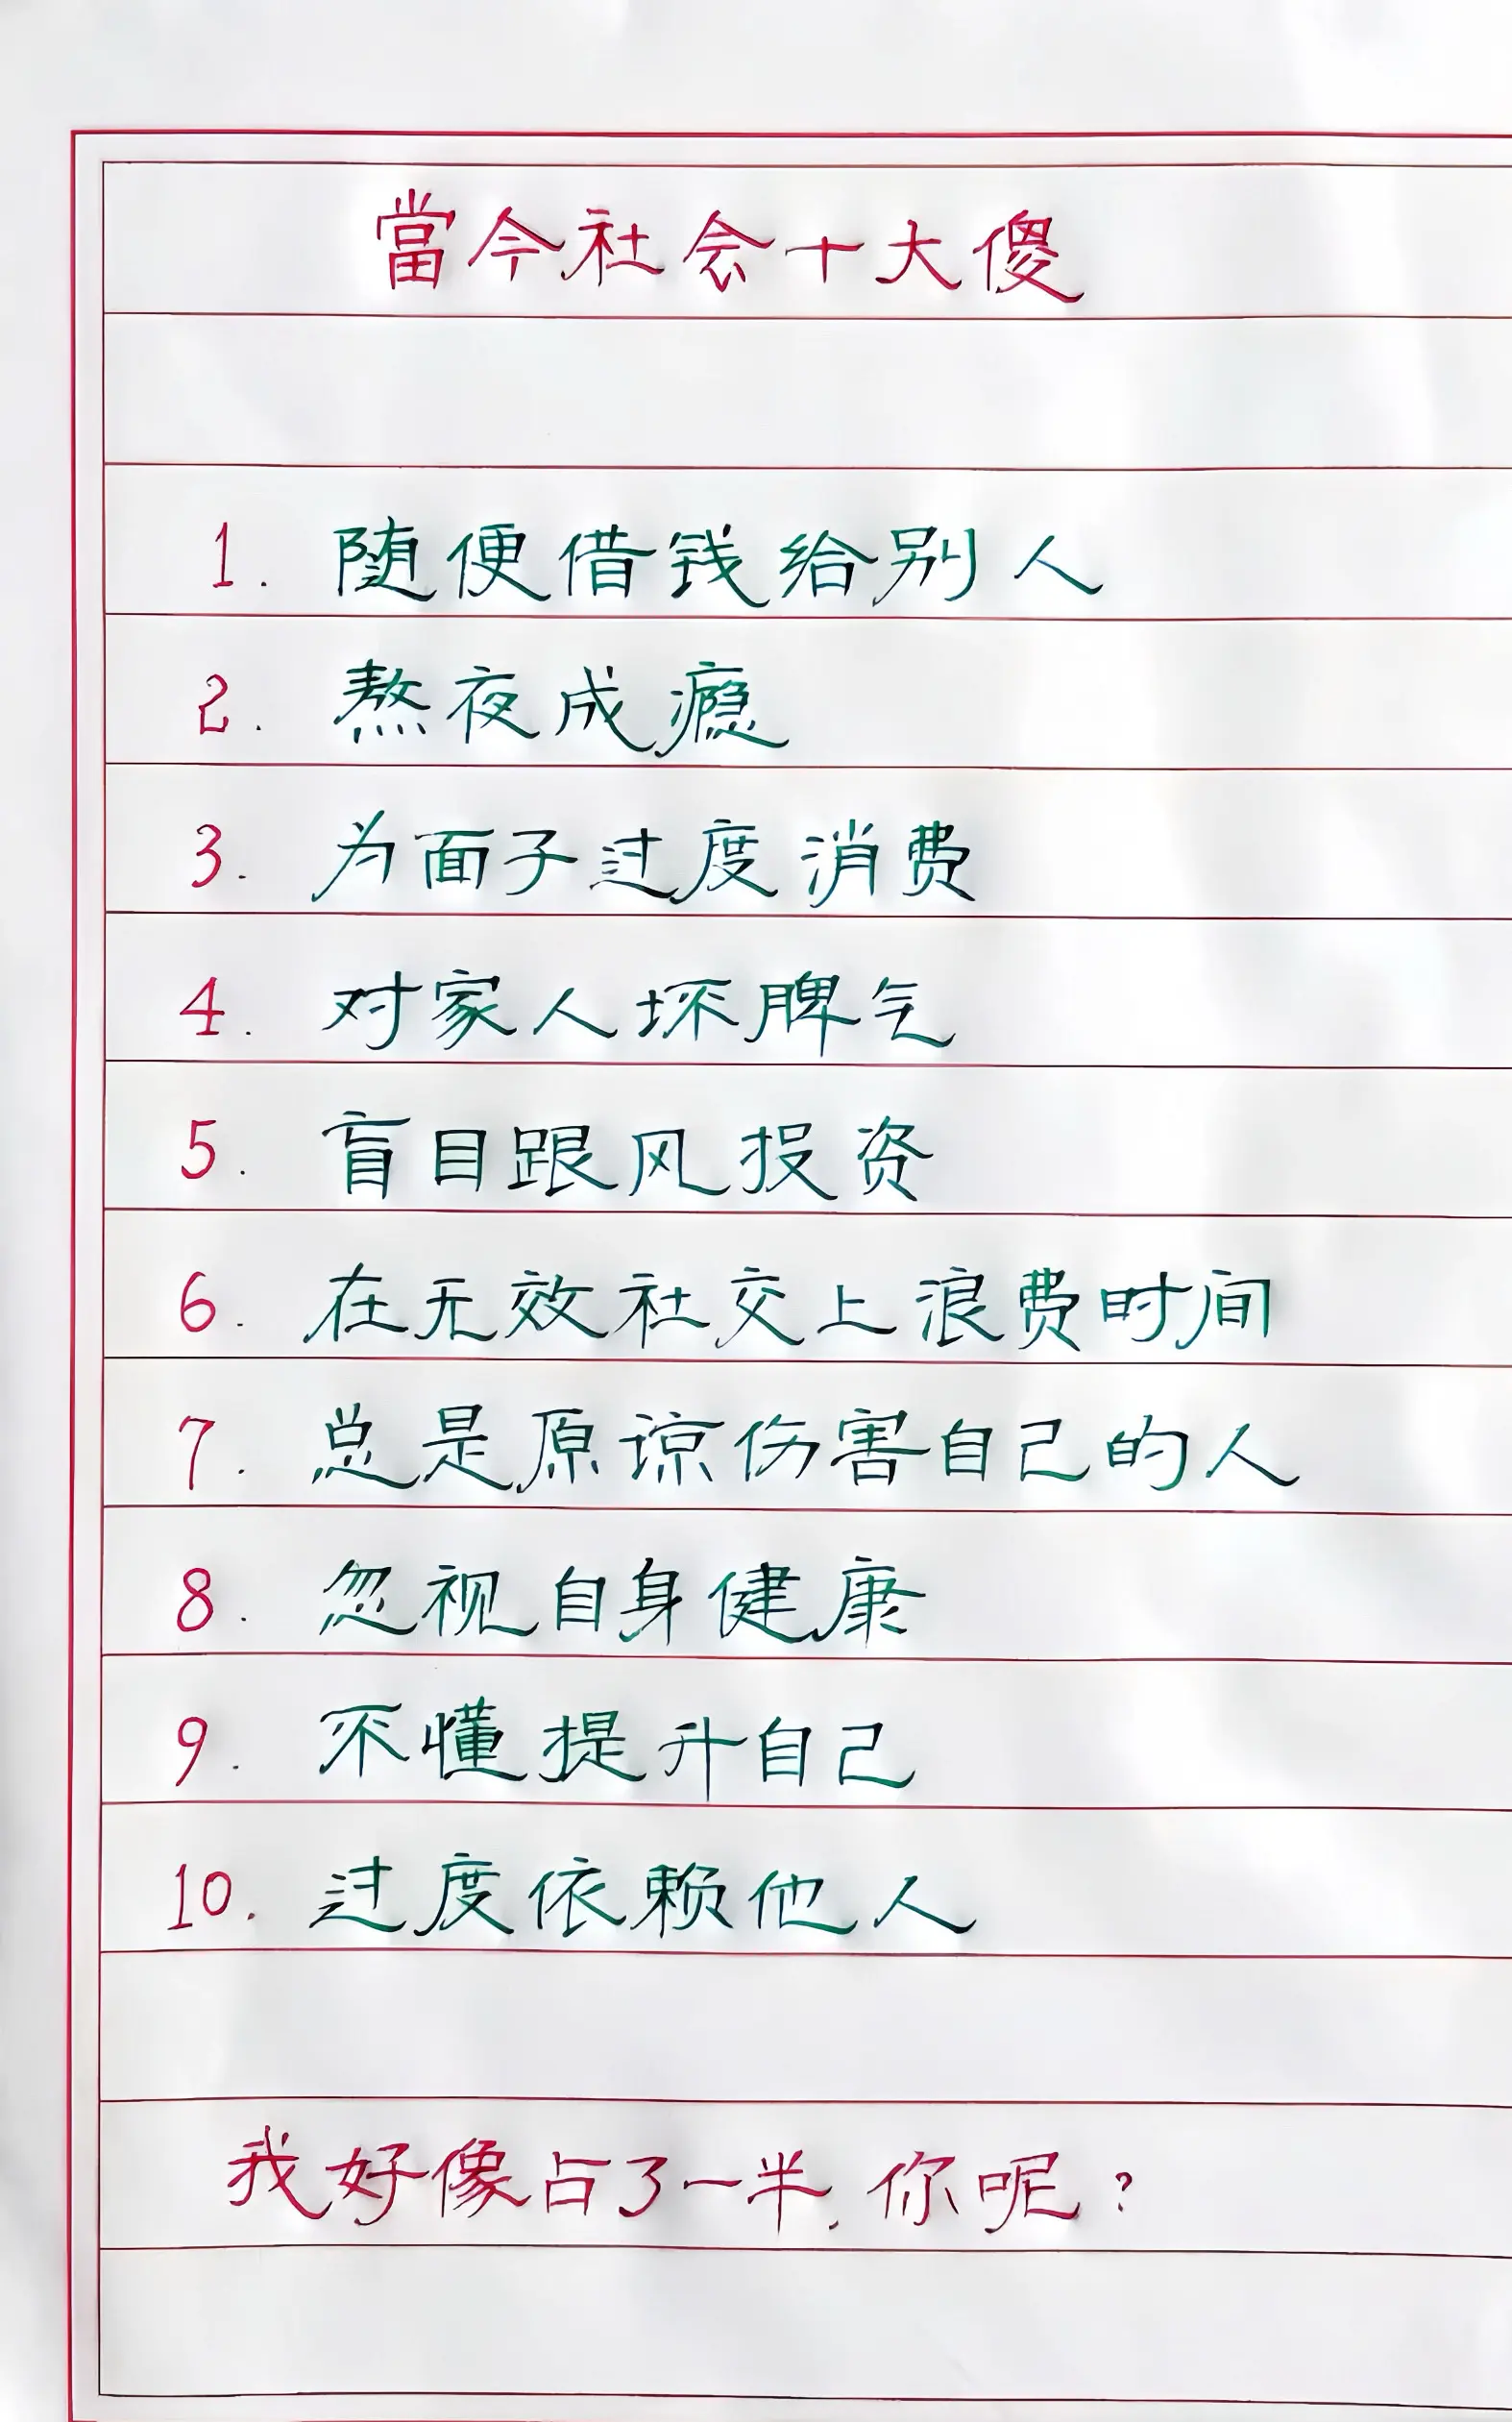 當今社会十大傻
1. 随便借钱给别人
2. 熬夜成瘾
3. 为面子过度消费
4. 对家人坏脾气
5. 盲目跟风投资
6. 在无效社交上浪费时间
7. 总是原谅伤害自己的人
8. 忽视自身健康
9. 不懂提升自己
10. 过度依赖他人
我好像占了一半, 你呢?